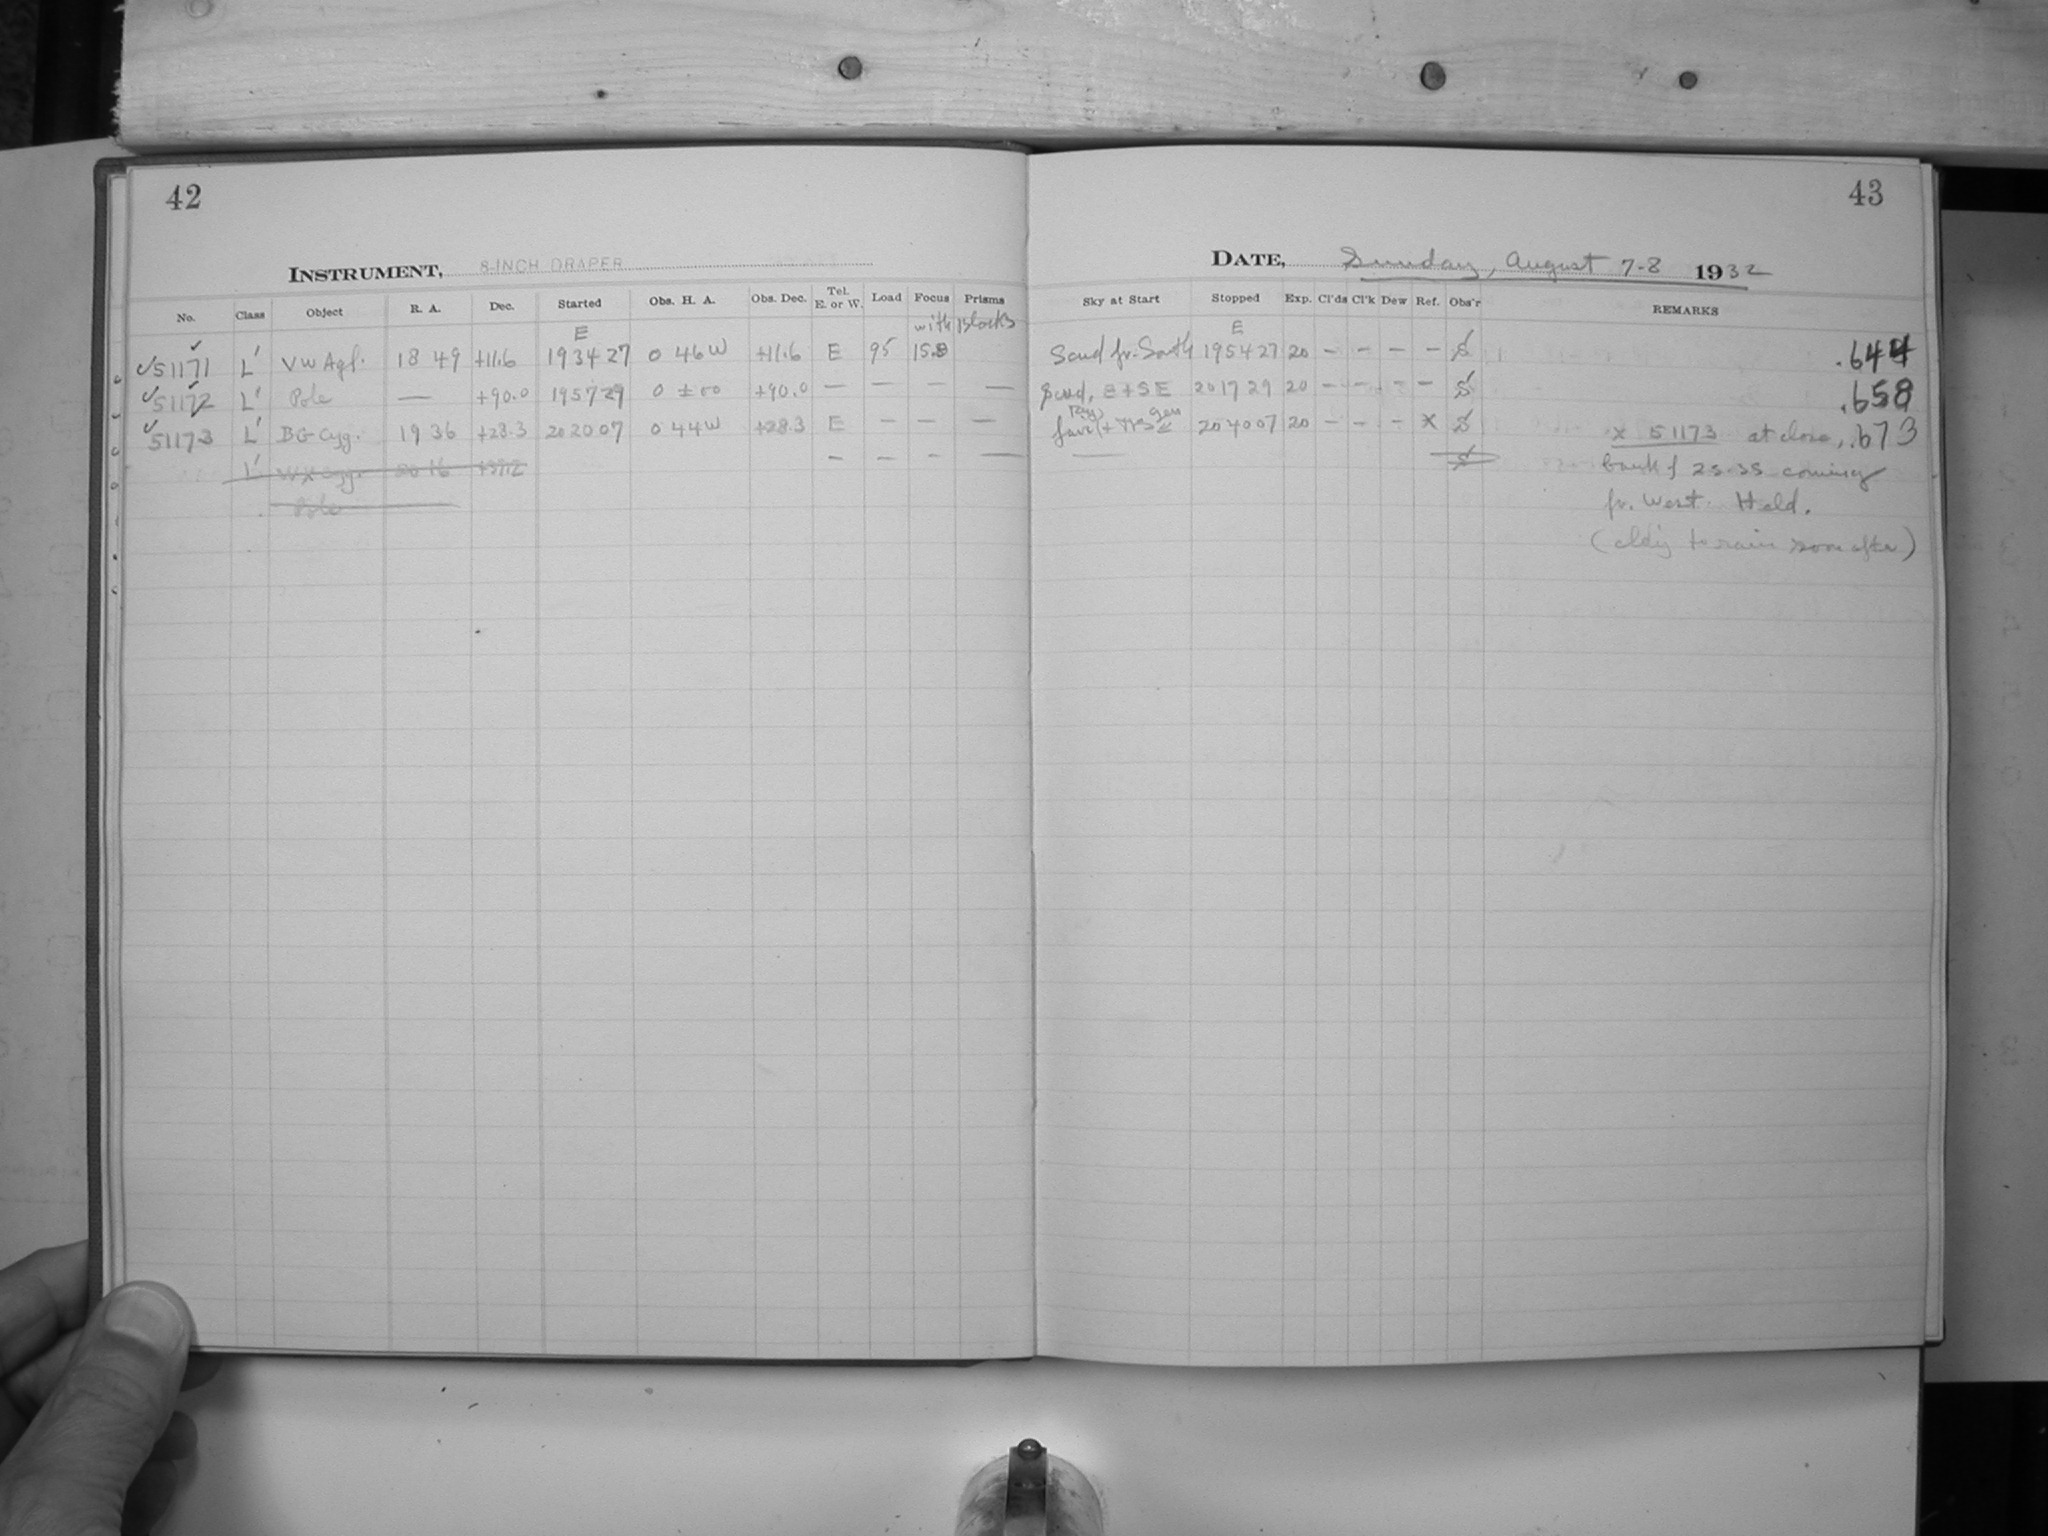 42
INSTRUMENT, 8-INCH DRAPER
No. Class Object R. A. Dec. Started Obs. H. A. Obs. Dec. Tel. E. or W. Load Focus Prisms
E with Blocks
51171 L' VW Aql. 18 49 +11.6 19 34 27 0 46 W +11.6 E 95 15.8
51172 L' Pole — +90.0 19 57 29 0 ± 00 +90.0 — — — —
51173 L' BG Cyg. 19 36 +28.3 20 20 07 0 44 W +28.3 E — — —
L' WX Cyg. 20 16 +37.2 — — — —
Pole
43
DATE, Sunday, August 7-8 1932
Sky at Start Stopped Exp. Cl'ds Cl'k Dew Ref. Obs'r REMARKS
E
Scud fr. South 19 54 27 20 — — — — S .644
Scud, E + SE 20 17 29 20 — — — — S .658
20 40 07 20 — — — x S x 51173 at close, .673
bank of 2s-3s coming
fr. West. Held.
(cldy to rain soon after)